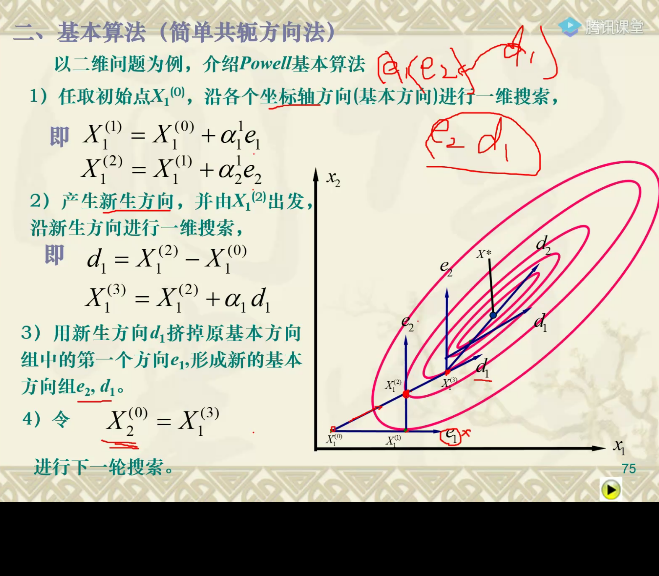 二、基本算法（简单共轭方向法）
腾讯课堂
以二维问题为例，介绍Powell基本算法
e₁ e₂ d₁
1）任取初始点X₁⁽⁰⁾，沿各个坐标轴方向(基本方向)进行一维搜索，
e₂ d₁
即 X₁⁽¹⁾ = X₁⁽⁰⁾ + α₁¹e₁
X₁⁽²⁾ = X₁⁽¹⁾ + α₂¹e₂
2）产生新生方向，并由X₁⁽²⁾出发，
沿新生方向进行一维搜索，
即 d₁ = X₁⁽²⁾ − X₁⁽⁰⁾
X₁⁽³⁾ = X₁⁽²⁾ + α₁d₁
3）用新生方向d₁挤掉原基本方向
组中的第一个方向e₁,形成新的基本
方向组e₂, d₁。
4）令 X₂⁽⁰⁾ = X₁⁽³⁾
进行下一轮搜索。
x₂
X*
d₂
e₂
e₂
d₁
d₁
X₁⁽²⁾
X₁⁽³⁾
X₁⁽⁰⁾
X₁⁽¹⁾
e₁
x₁
75